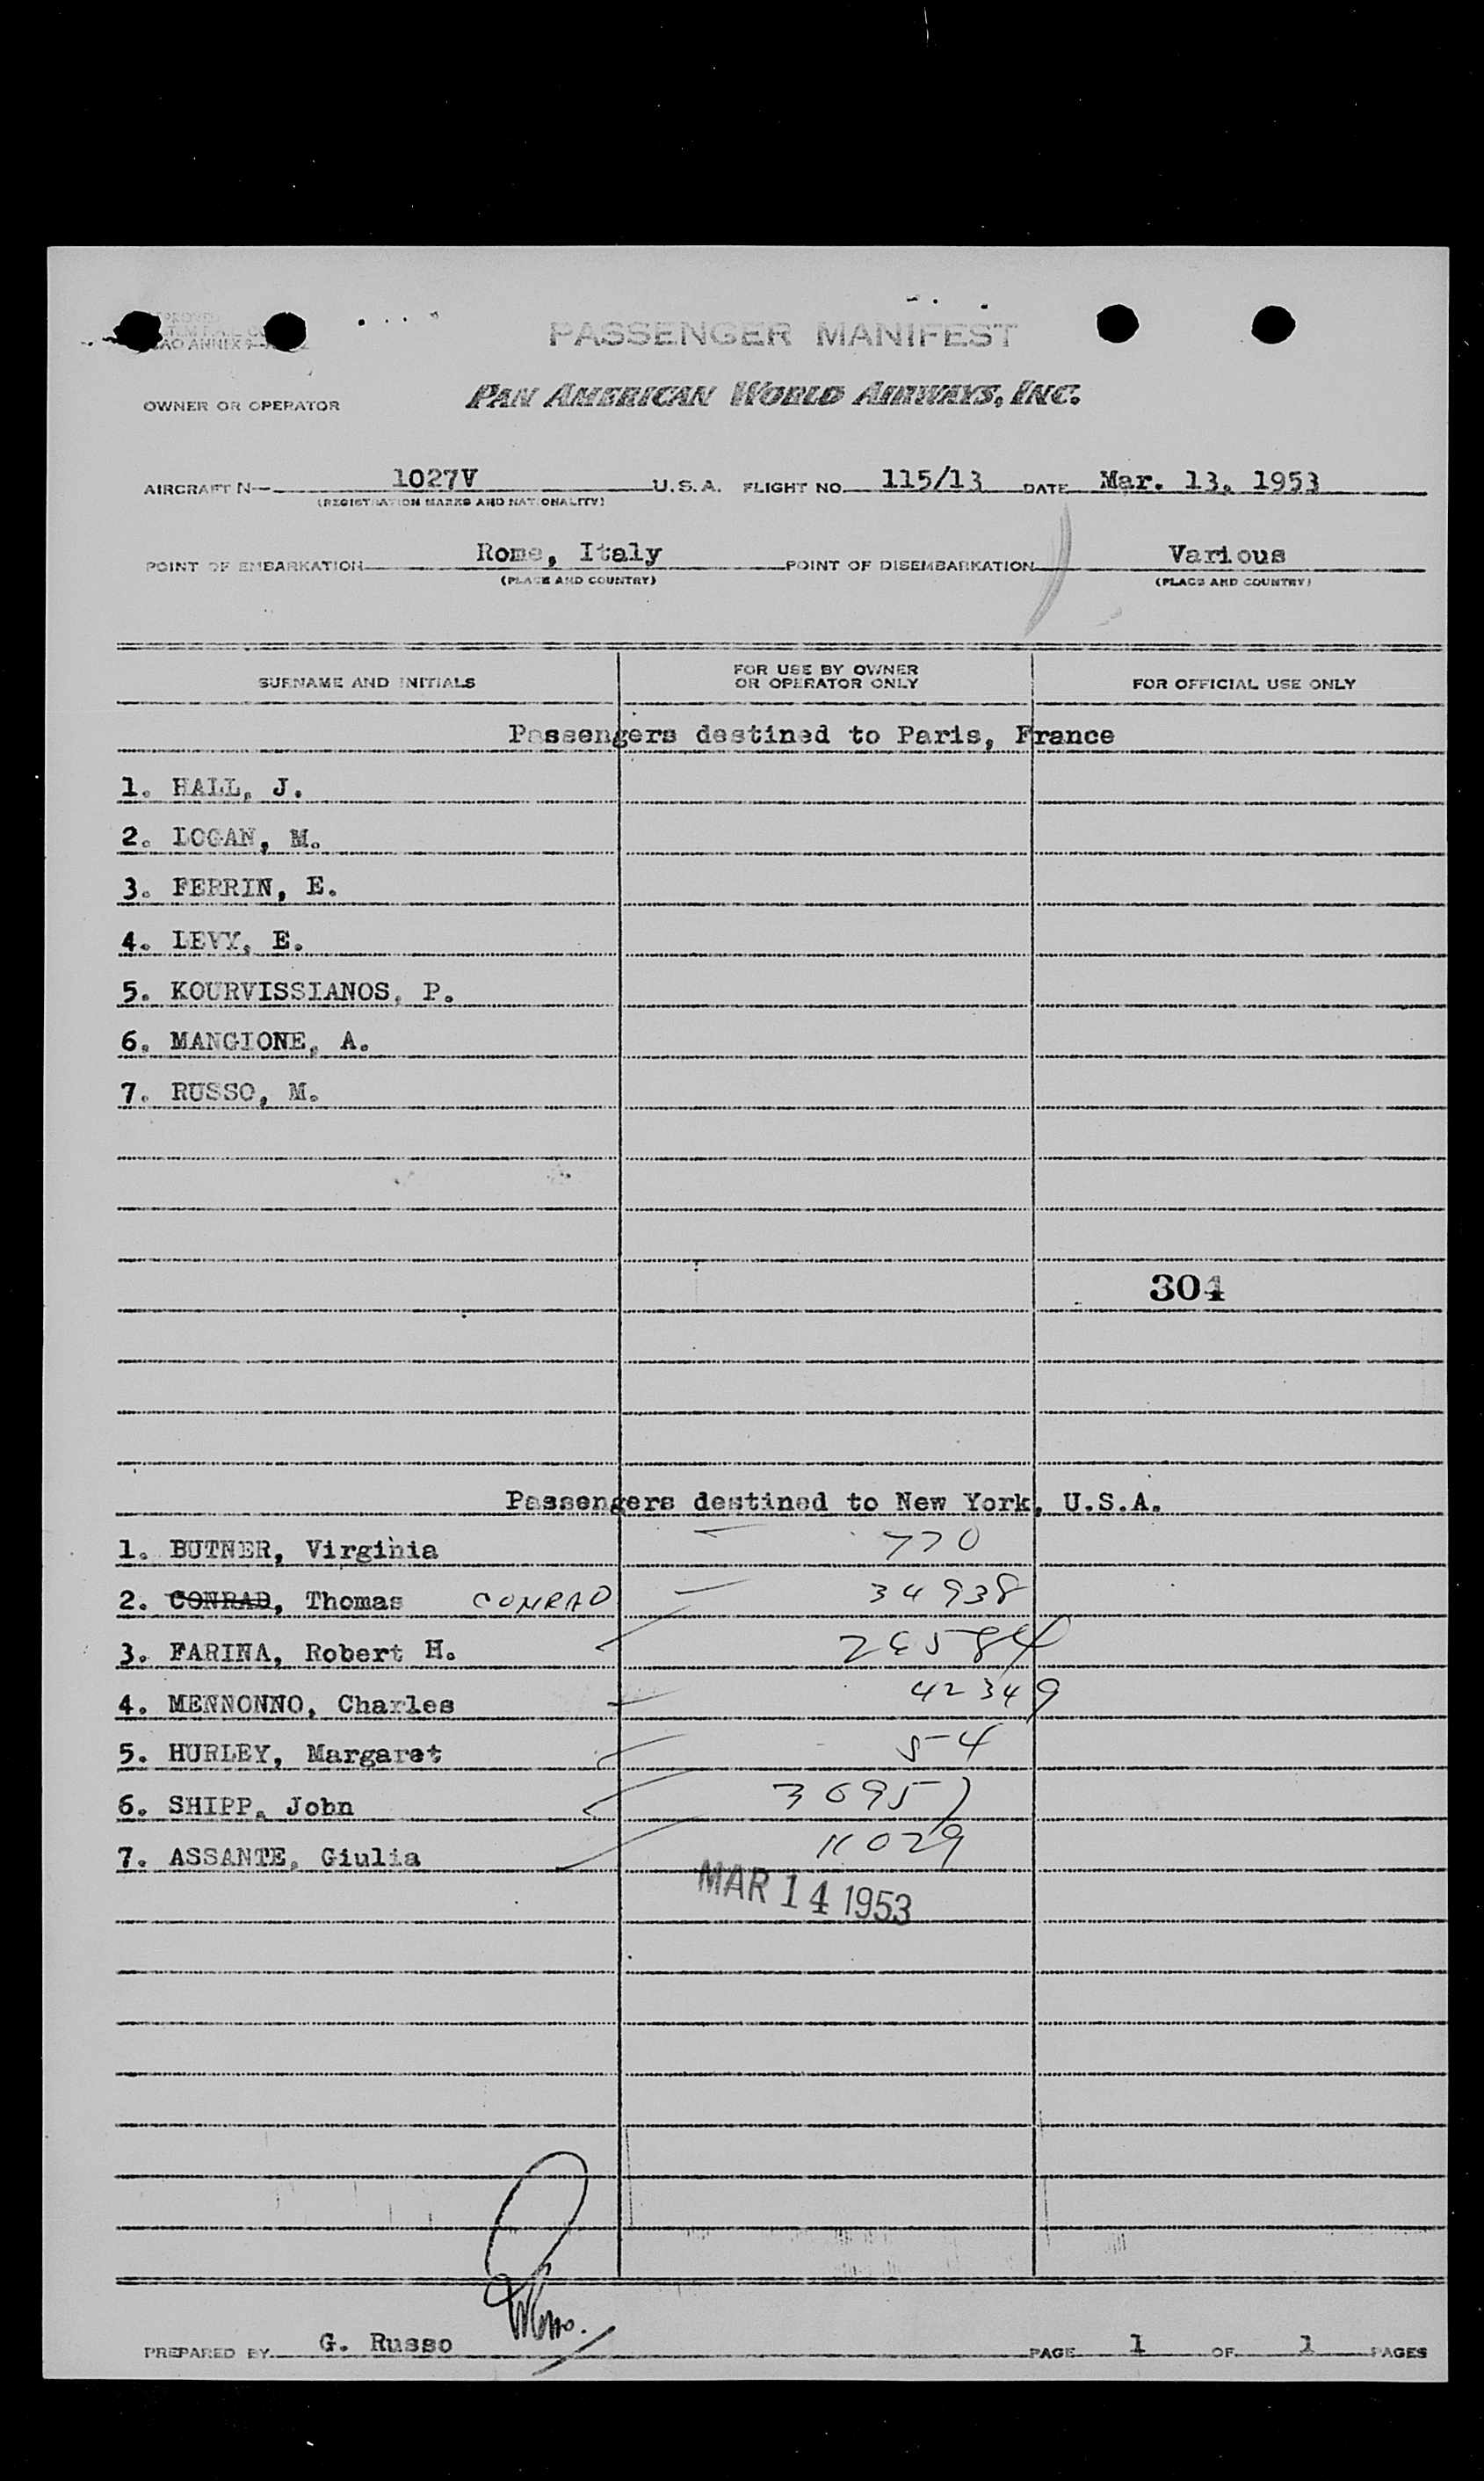 PASSENGER MANIFEST
OWNER OR OPERATOR PAN AMERICAN WORLD AIRWAYS, INC.
AIRCRAFT N— 1027V U.S.A. FLIGHT NO. 115/13 DATE Mar. 13, 1953
(REGISTRATION MARKS AND NATIONALITY)
POINT OF EMBARKATION Rome, Italy POINT OF DISEMBARKATION Various
(PLACE AND COUNTRY) (PLACE AND COUNTRY)
SURNAME AND INITIALS FOR USE BY OWNER OR OPERATOR ONLY FOR OFFICIAL USE ONLY
Passengers destined to Paris, France
1. HALL, J.
2. LOGAN, M.
3. FERRIN, E.
4. LEVY, E.
5. KOURVISSIANOS, P.
6. MANGIONE, A.
7. RUSSO, M.
304
Passengers destined to New York, U.S.A.
1. BUTNER, Virginia 770
2. CONRAD, Thomas CONRAD 34938
3. FARINA, Robert H.
4. MENNONNO, Charles 42349
5. HURLEY, Margaret 54
6. SHIPP, John
7. ASSANTE, Giulia 11029
MAR 14 1953
PREPARED BY G. Russo PAGE 1 OF 1 PAGES